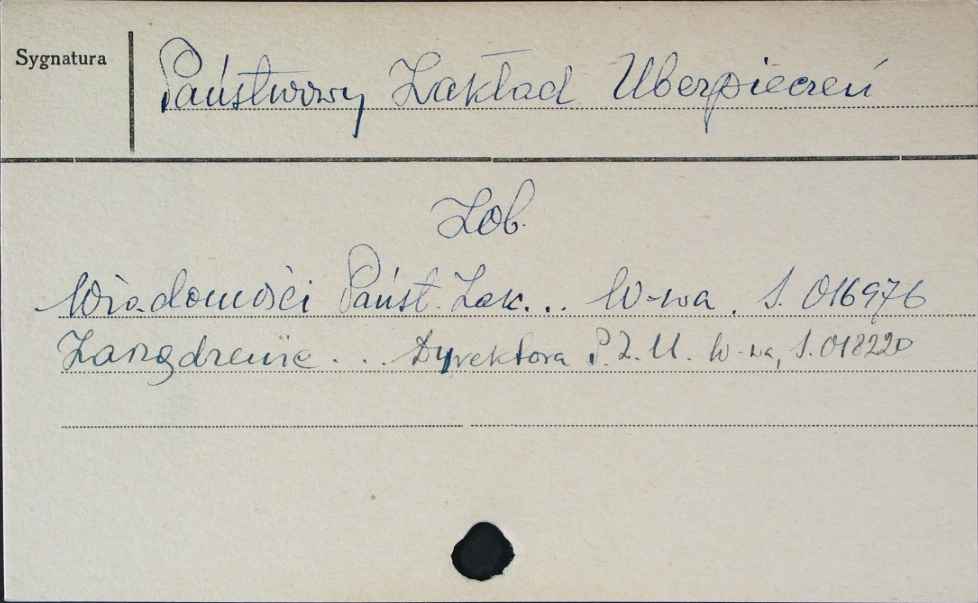 Sygnatura
Państwowy Zakład Ubezpieczeń
Zob.
Wiadomości Państ. Zak... W-wa. S. 016976
Zarządzenie... Dyrektora P.Z.U. W-wa, S. 018220